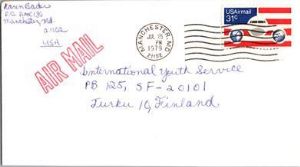 Karen Bader
Manchester, Md
21102
USA
AIR MAIL
MANCHESTER, MD
JUL 15
PM
1979
21102
USAirmail
31c
International Youth Service
PB 125, SF-20101
Turku 10, Finland